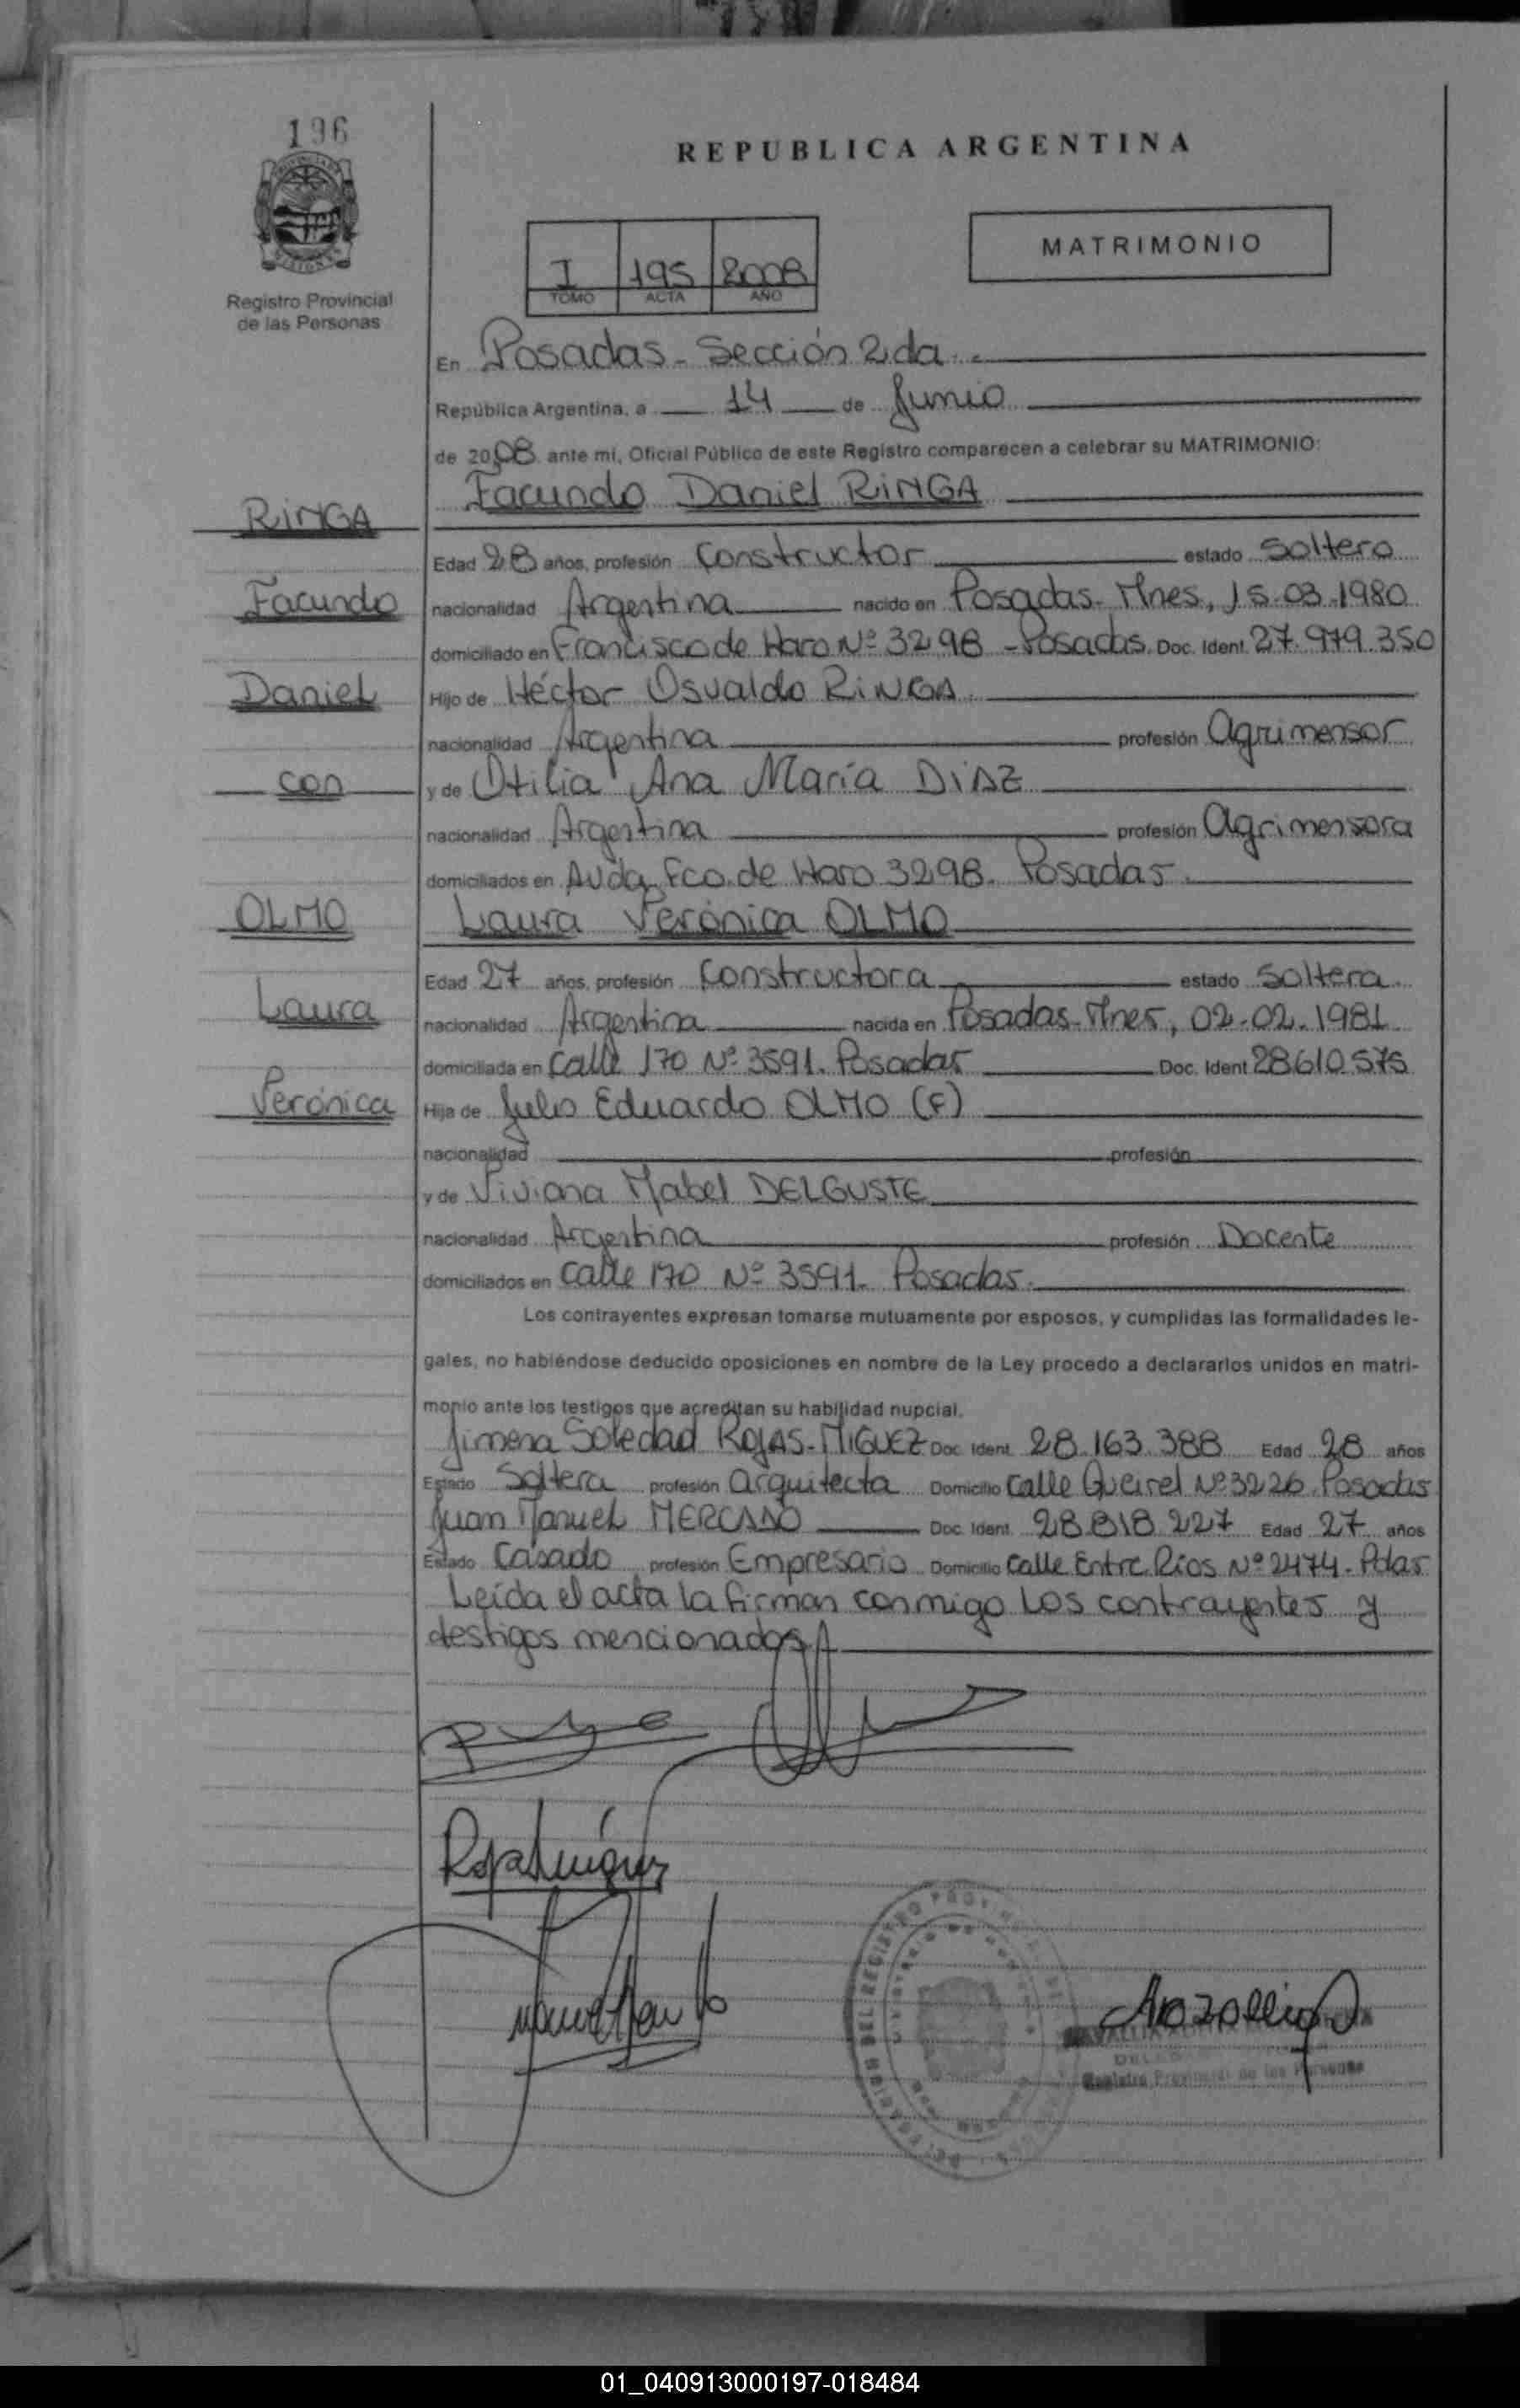 196
REPUBLICA ARGENTINA
MATRIMONIO
I 195 2008
TOMO ACTA AÑO
Registro Provincial
de las Personas
En Posadas - Sección 2da.
República Argentina, a 14 de Junio
de 2008 ante mí, Oficial Público de este Registro comparecen a celebrar su MATRIMONIO:
Facundo Daniel RINGA
RINGA
Edad 28 años, profesión Constructor estado Soltero
Facundo
nacionalidad Argentina nacido en Posadas - Mnes, 15-03-1980
domiciliado en Francisco de Haro Nº 3298 - Posadas. Doc. Ident. 27.979.350
Daniel
Hijo de Héctor Osvaldo RINGA
nacionalidad Argentina profesión Agrimensor
con
y de Otilia Ana María DIAZ
nacionalidad Argentina profesión Agrimensora
domiciliados en Avda. Fco. de Haro 3298. Posadas.
OLMO
Laura Verónica OLMO
Edad 27 años, profesión Constructora estado Soltera
Laura
nacionalidad Argentina nacida en Posadas - Mnes, 02-02-1981
domiciliada en Calle 170 Nº 3591. Posadas Doc. Ident 28610575
Verónica
Hija de Julio Eduardo OLMO (F)
nacionalidad profesión
y de Viviana Mabel DELGUSTE
nacionalidad Argentina profesión Docente
domiciliados en Calle 170 Nº 3591. Posadas.
Los contrayentes expresan tomarse mutuamente por esposos, y cumplidas las formalidades le-
gales, no habiéndose deducido oposiciones en nombre de la Ley procedo a declararlos unidos en matri-
monio ante los testigos que acreditan su habilidad nupcial.
Jimena Soledad ROJAS-MIGUEZ Doc. Ident. 28.163.388 Edad 28 años
Estado Soltera profesión Arquitecta Domicilio Calle Queirel Nº 3226. Posadas
Juan Manuel MERCADO Doc. Ident. 28.818.227 Edad 27 años
Estado Casado profesión Empresario Domicilio Calle Entre Ríos Nº 2474 - Pdas
Leída el acta la firman conmigo los contrayentes y
testigos mencionados
Registro Provincial de las Personas
01_040913000197-018484